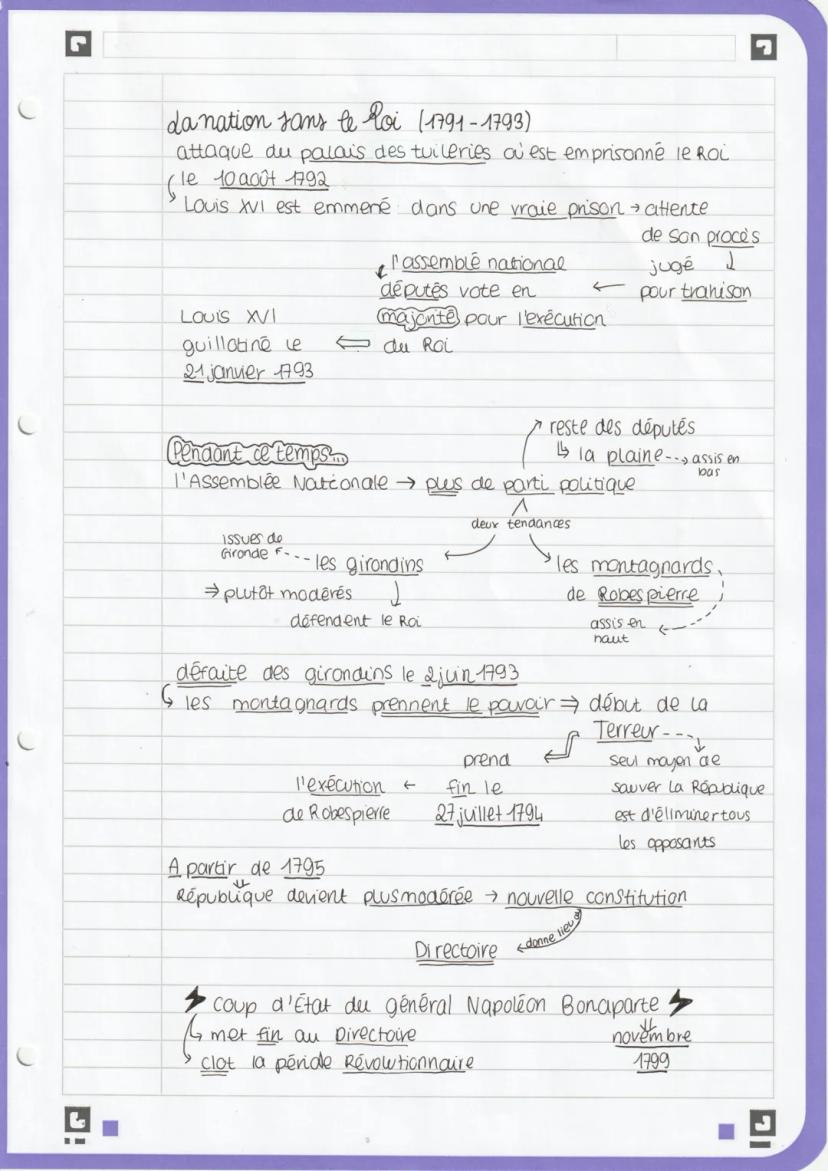 La nation sans le Roi (1791-1793)
attaque du palais des tuileries où est emprisonné le Roi
le 10 août 1792
Louis XVI est emmené dans une vraie prison → attente
de son procès
jugé ↓
pour trahison
l'assemblé national
députés vote en ←
majorité pour l'exécution
du Roi
Louis XVI
guillotiné le ⇐
21 janvier 1793
Pendant ce temps...
reste des députés
↳ la plaine --→ assis en
bas
l'Assemblée Nationale → plus de parti politique
deux tendances
issues de
Gironde ←--- les girondins
⇒ plutôt modérés ↓
défendent le Roi
les montagnards
de Robespierre
assis en
haut
défaite des girondins le 2 juin 1793
↳ les montagnards prennent le pouvoir ⇒ début de la
Terreur
seul moyen de
sauver la République
est d'éliminer tous
les opposants
prend
fin le
27 juillet 1794
l'exécution ←
de Robespierre
A partir de 1795
République devient plus modérée → nouvelle constitution
donne lieu à
Directoire
⚡ coup d'État du général Napoléon Bonaparte ⚡
↳ met fin au Directoire
novembre
1799
↳ clot la période Révolutionnaire